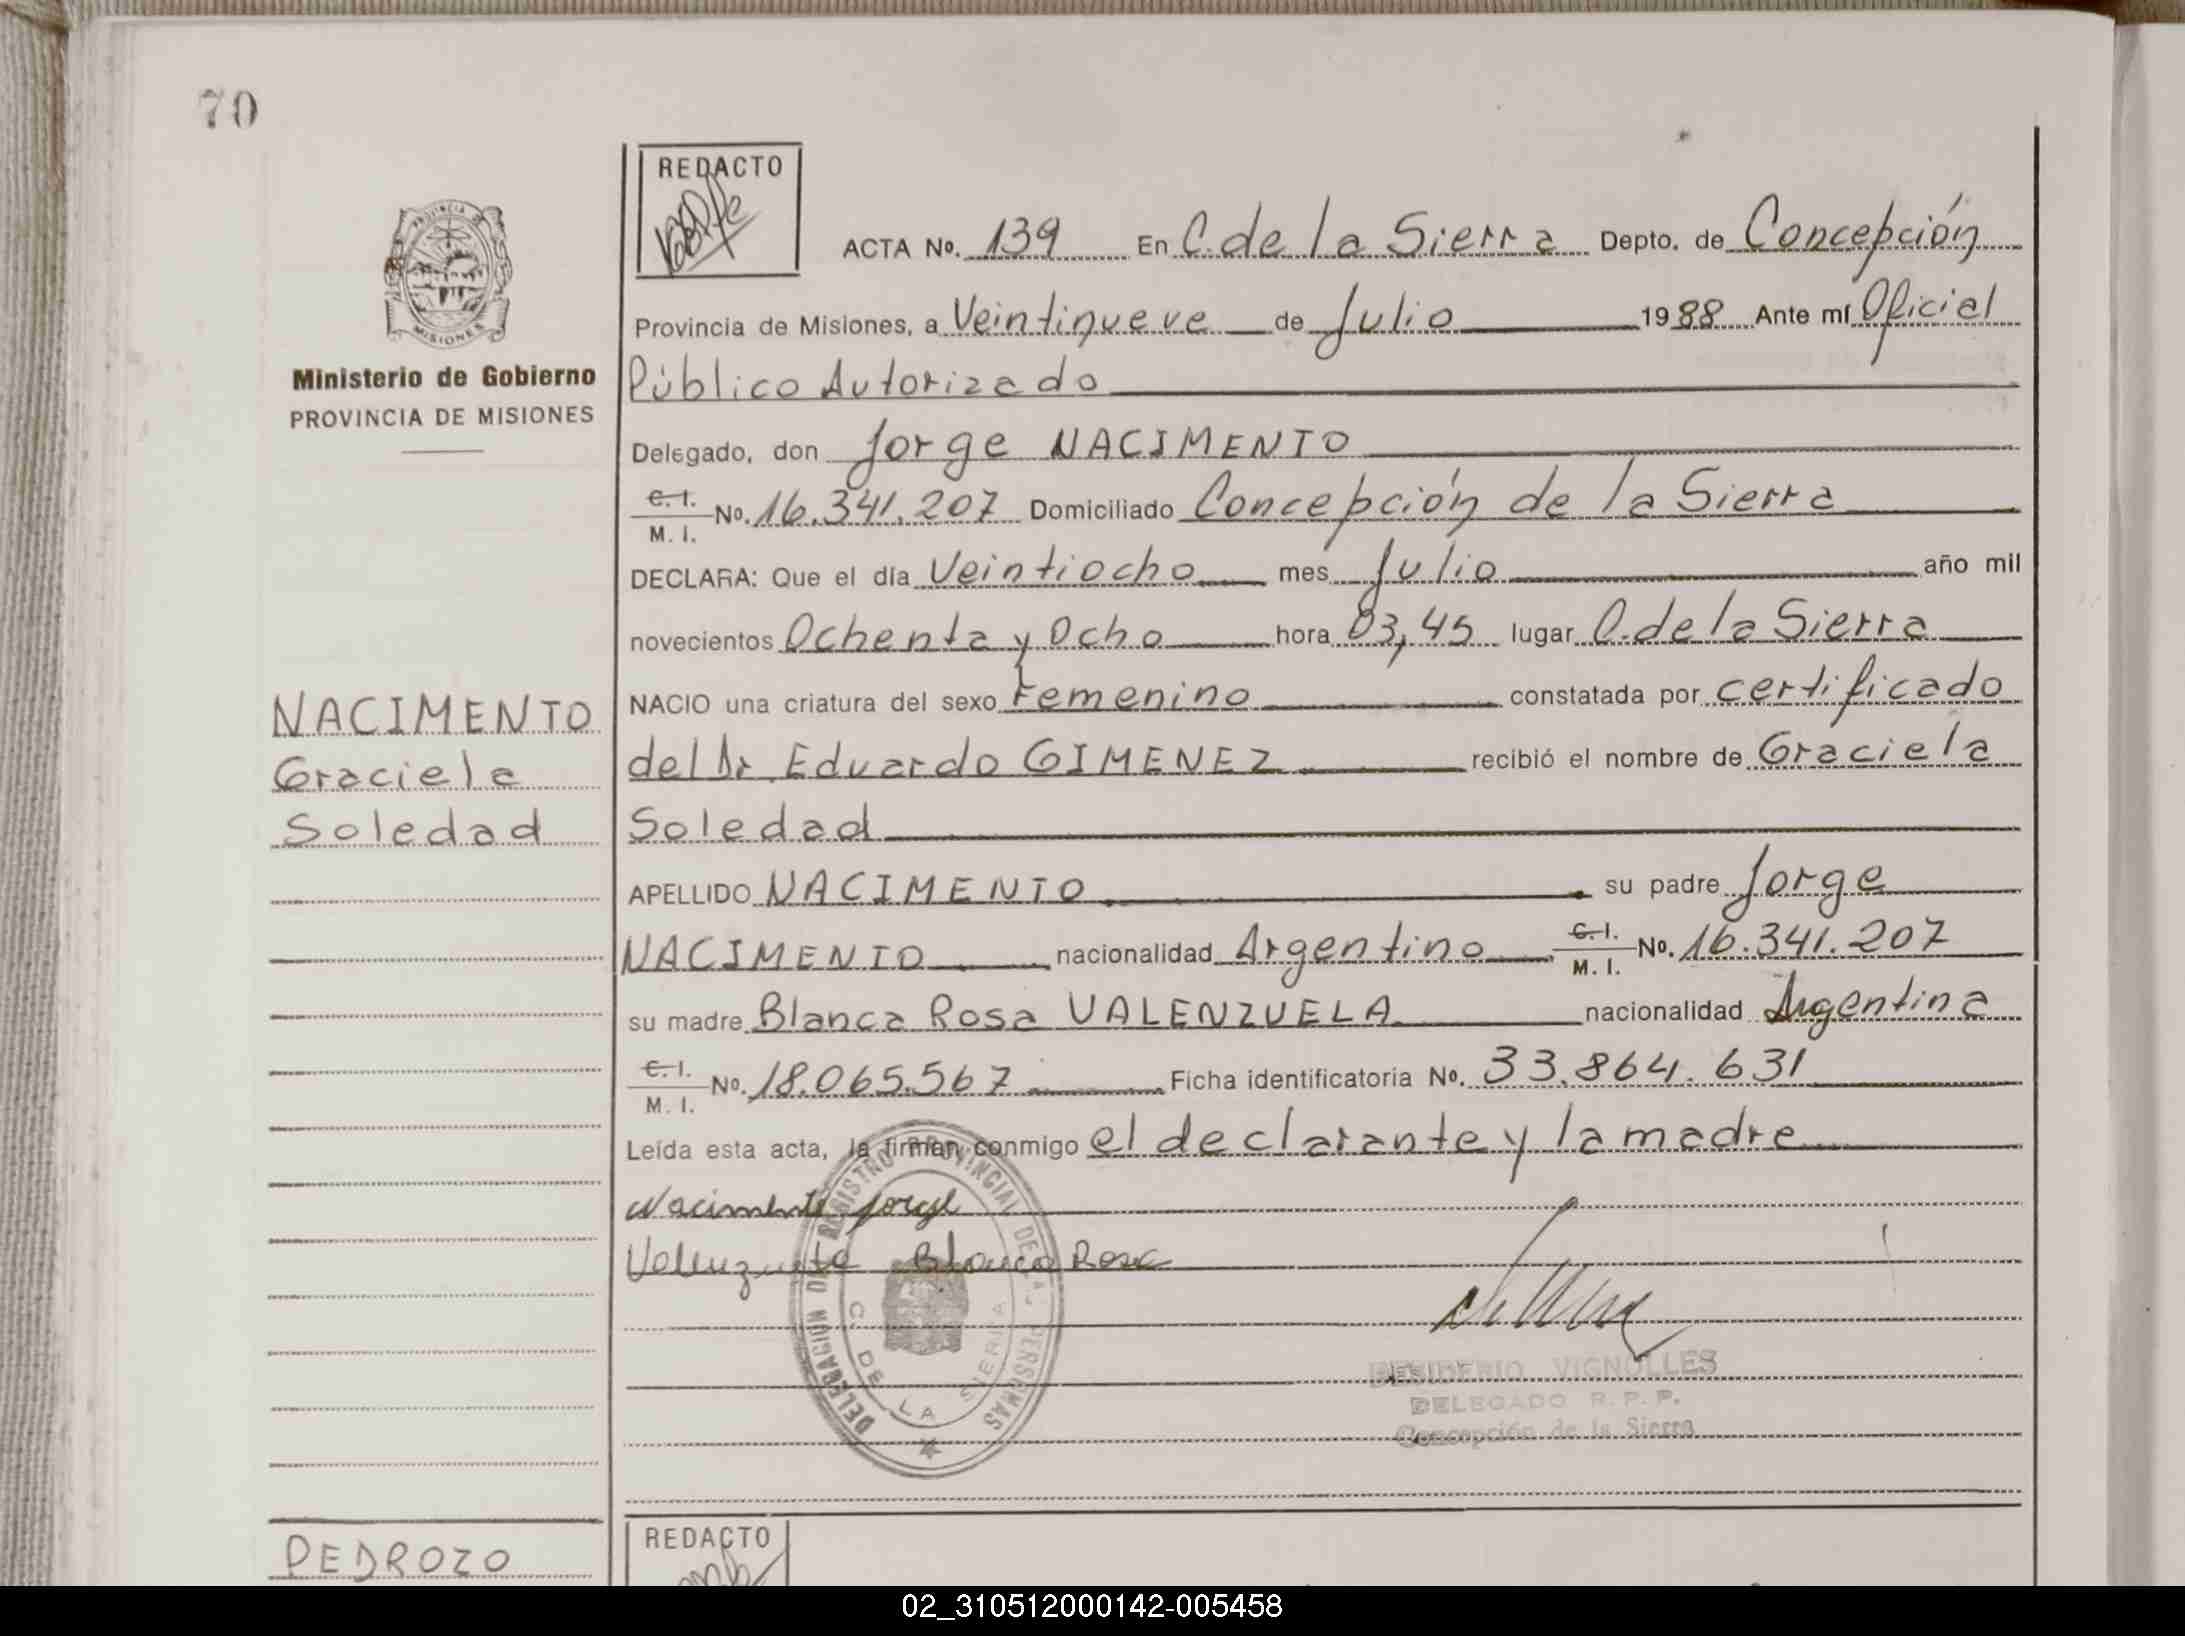 70
REDACTO
ACTA Nº. 139 En C. de la Sierra Depto. de Concepción
Provincia de Misiones, a Veintinueve de Julio 1988 Ante mí Oficial
Ministerio de Gobierno
PROVINCIA DE MISIONES
Público Autorizado
Delegado, don Jorge NACIMENTO
C. I. M. I. Nº. 16.341.207 Domiciliado Concepción de la Sierra
DECLARA: Que el día Veintiocho mes Julio año mil
novecientos Ochenta y Ocho hora 03,45 lugar C. de la Sierra
NACIMENTO
Graciela
Soledad
NACIO una criatura del sexo Femenino constatada por certificado
del Dr. Eduardo GIMENEZ recibió el nombre de Graciela
Soledad
APELLIDO NACIMENTO su padre Jorge
NACIMENTO nacionalidad Argentino C. I. M. I. Nº. 16.341.207
su madre Blanca Rosa VALENZUELA nacionalidad Argentina
C. I. M. I. Nº. 18.065.567 Ficha identificatoria Nº. 33.864.631
Leída esta acta, la firman conmigo el declarante y la madre
Nacimento Jorge
Valenzuela Blanca Rosa
DELEGACION DEL REGISTRO PROVINCIAL DE LAS PERSONAS
C. DE LA SIERRA
DESIDERIO VIGNOLLES
DELEGADO R. P. P.
Concepción de la Sierra
PEDROZO
REDACTO
02_310512000142-005458